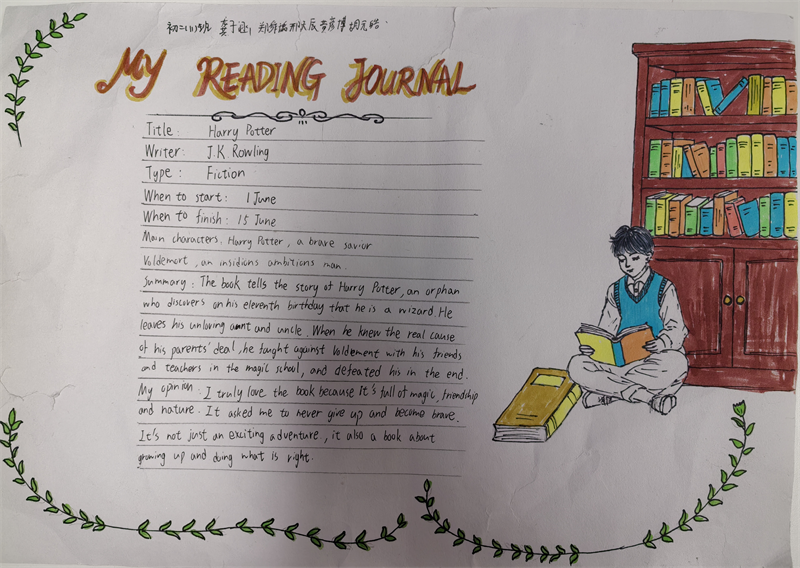 初二(1)班
MY READING JOURNAL
Title: Harry Potter
Writer: J.K Rowling
Type: Fiction
When to start: 1 June
When to finish: 15 June
Main characters: Harry Potter, a brave savior
Voldemort, an insidions ambitions man.
Summary: The book tells the story of Harry Potter, an orphan
who discovers on his eleventh birthday that he is a wizard. He
leaves his unloving aunt and uncle. When he knew the real cause
of his parents' deal, he fought against Voldemort with his friends
and teachers in the magic school, and defeated his in the end.
My opinion: I truly love the book because It's full of magic, friendship
and nature. It asked me to never give up and become brave.
It's not just an exciting adventure, it also a book about
growing up and doing what is right.